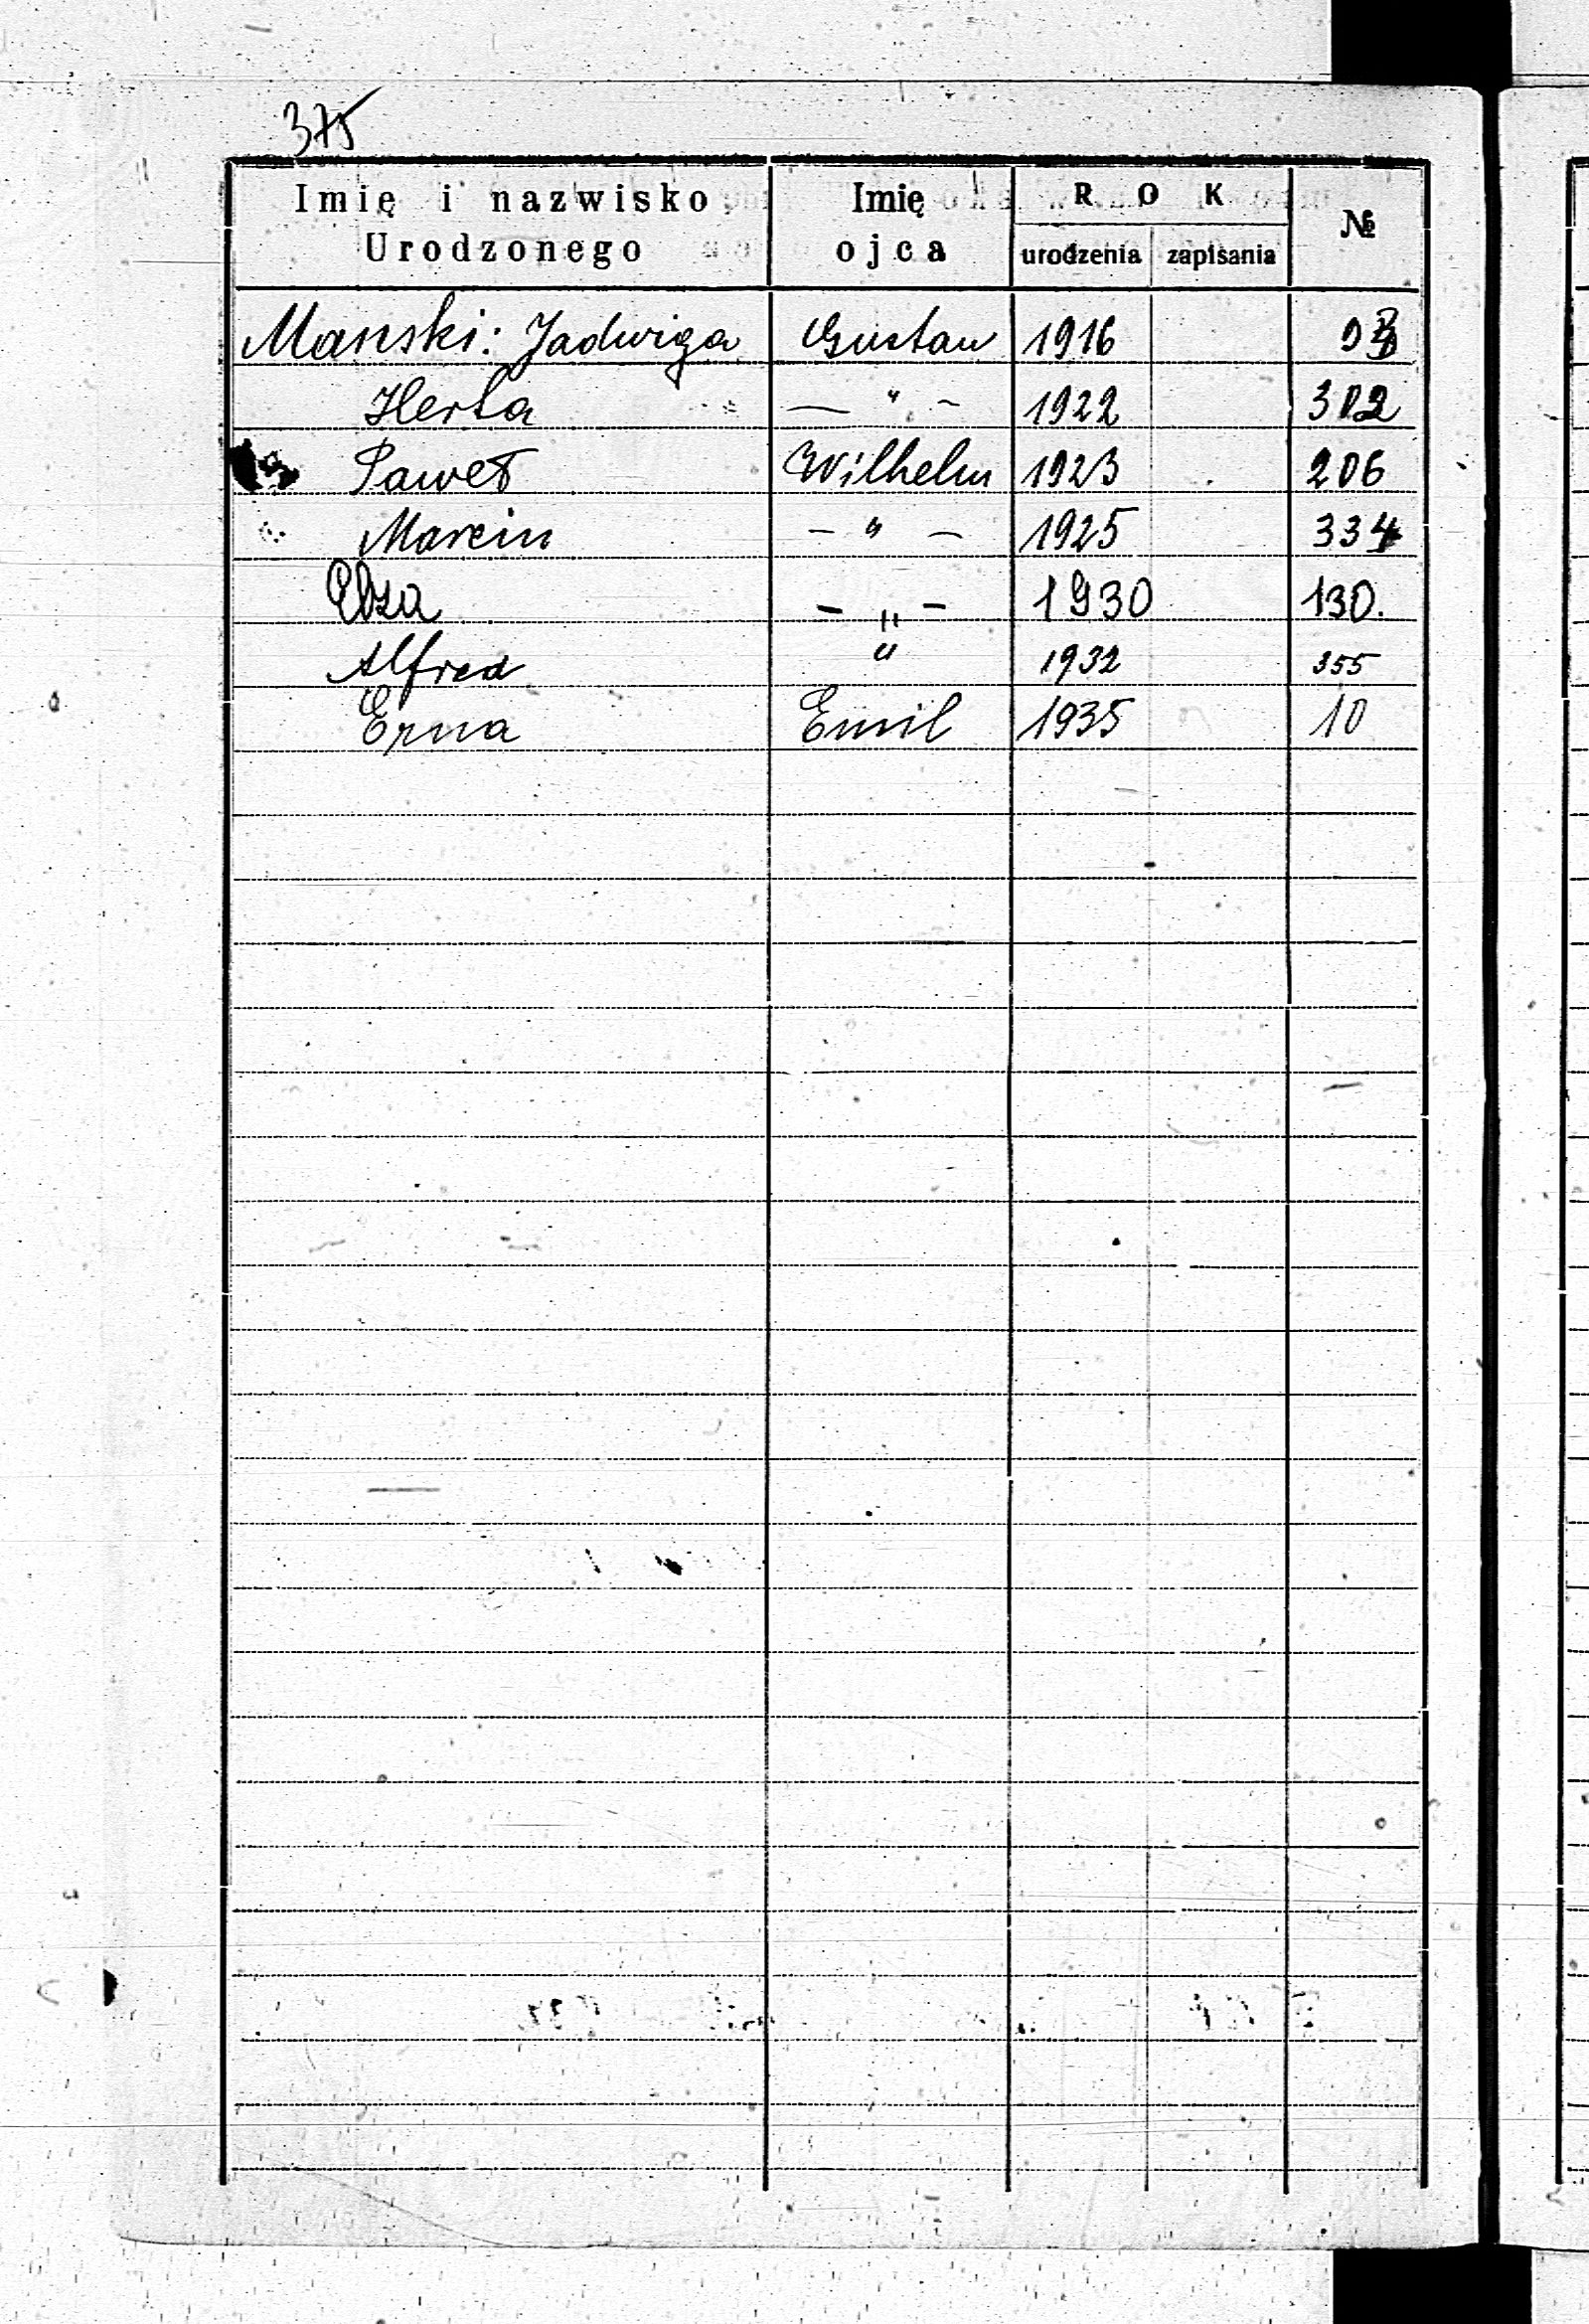 375
Imię i nazwisko Urodzonego Imię ojca ROK urodzenia zapisania №
Manski: Jadwiga Gustaw 1916
Herta — " — 1922 302
Paweł Wilhelm 1923 206
Marcin — " — 1925 334
Elza — " — 1930 130.
Alfred " 1932 355
Erna Emil 1935 10